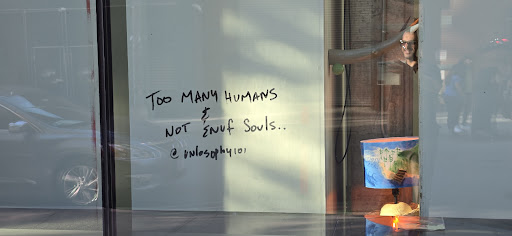 TOO MANY HUMANS
&
NOT ENUF SOULS..
@unlosophy101